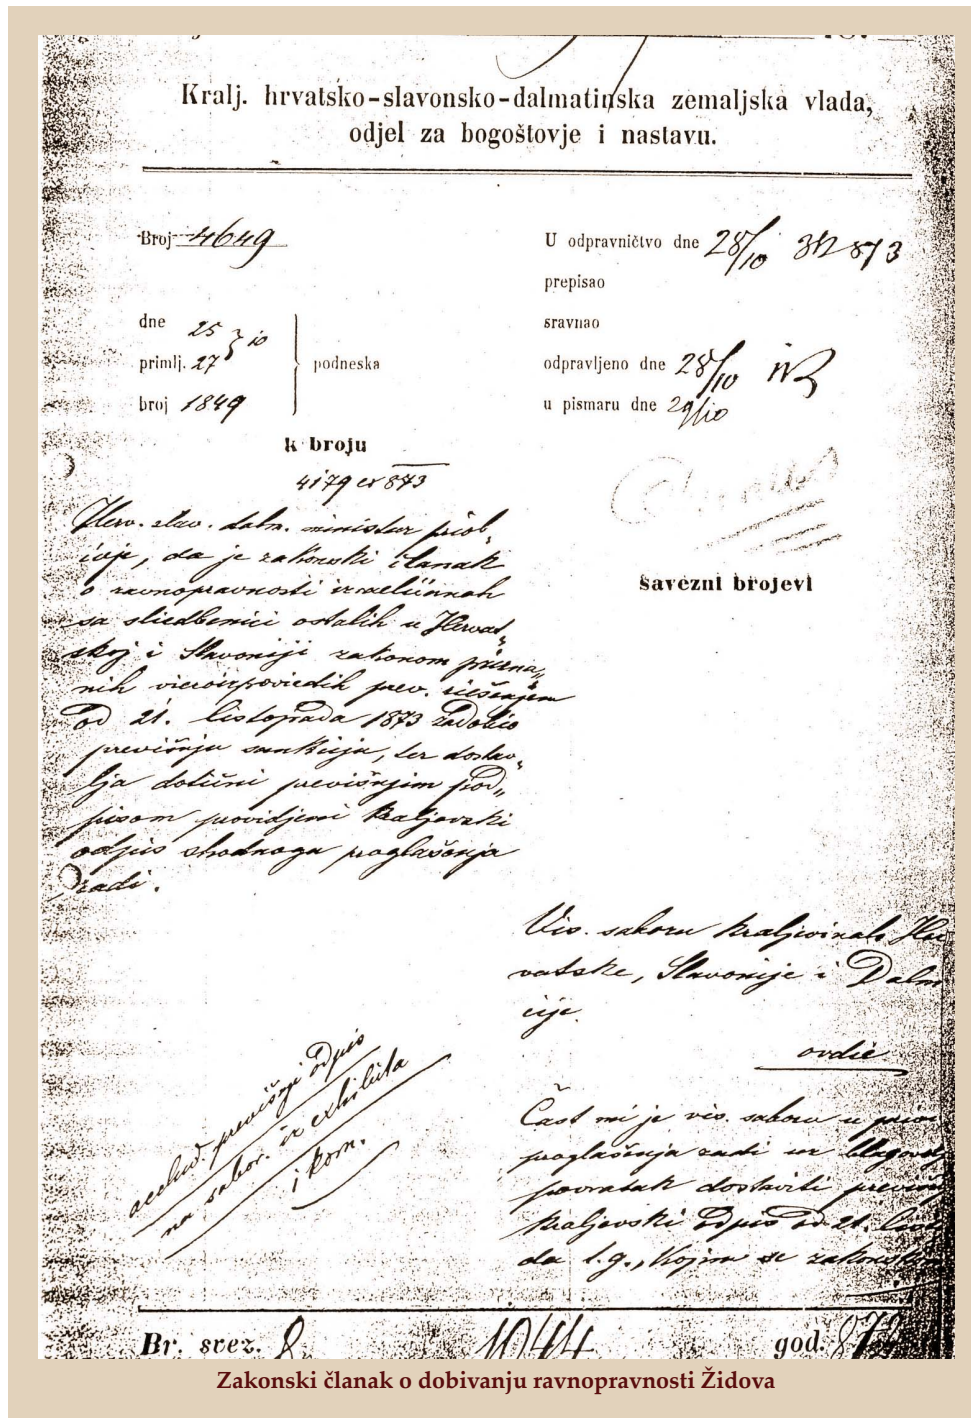 Kralj. hrvatsko-slavonsko-dalmatinska zemaljska vlada,
odjel za bogoštovje i nastavu.
Broj 4649
dne 25
primlj. 27 } 10
broj 1849
podneska
k broju
4179 ex 873
U odpravničtvo dne 28/10 873
prepisao
sravnao
odpravljeno dne 28/10
u pismaru dne 29/10
savezni brojevi
Herv. slav. dalm. ministar priob„
ćuje, da je zakonski članak
o ravnopravnosti izraelićanah
sa sliedbenici ostalih u Hervat„
skoj i Slavoniji zakonom prizna„
nih vieroizpoviedih prev. riešenjem
od 21. listopada 1873 zadobio
previšnju sankciju, ter dostav„
lja dotični previšnjim pod„
pisom providjeni kraljevski
odpis shodnoga proglašenja
radi.
Vis. saboru kraljevinah Her
vatske, Slavonije i Dalm
cije
ovdie
Čast mi je vis. saboru u
proglašenja radi uz
povratak dostaviti
kraljevski odpis od 21.
da t.g., kojim se
previšnji odpis
na sabor. iz exhibita
i kom.
Br. svez. 8 1044 god. 872
Zakonski članak o dobivanju ravnopravnosti Židova